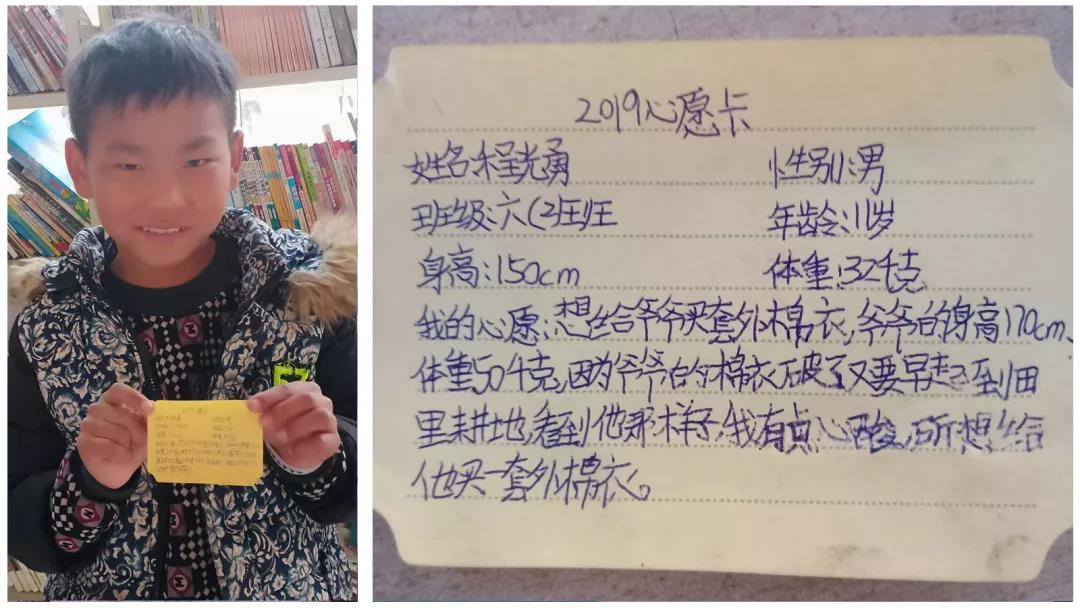 2019心愿卡
姓名:程光勇 性别:男
班级:六(2)班 年龄:11岁
身高:150cm 体重:32千克
我的心愿:想给爷爷买套外棉衣,爷爷的身高170cm、
体重50千克,因为爷爷的棉衣破了又要早起到田
里耕地,看到他那样子,我有点心酸,所想给
他买一套外棉衣。